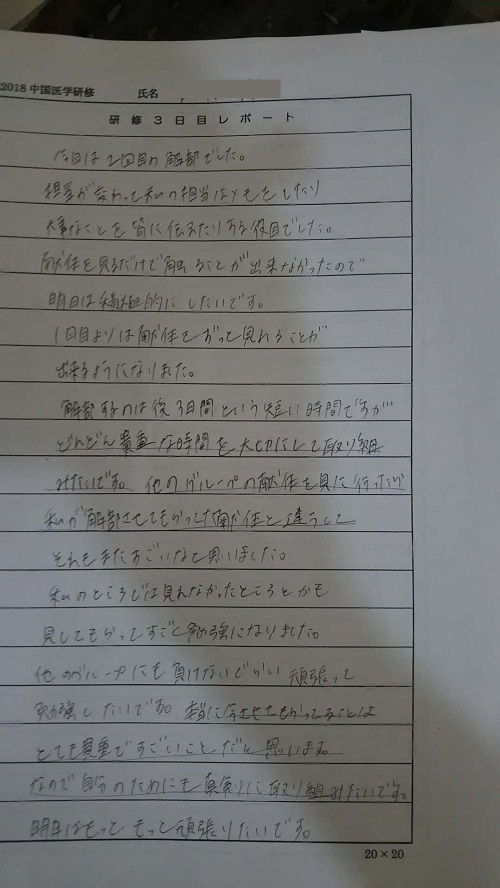 2018 中国医学研修 氏名
研修3日目レポート
今日は2回目の解部でした。
担当が変わって私の担当はメモをしたり
大事なことを皆に伝えたりする役目でした。
献体を見るだけで触ることが出来なかったので
明日は積極的にしたいです。
1日目よりは献体をずっと見れることが
出来るようになりました。
解部するのは後3日間という短い時間ですが
どんどん貴重な時間を大切にして取り組
みたいです。他のグループの献体を見に行ったけど
私が解部させてもらってた献体と違うくて
それもまたすごいなと思いました。
私のところじゃ見れなかったところとかも
見してもらってすごく勉強になりました。
他のグループにも負けないぐらい頑張って
勉強したいです。本当に今させてもらってることは
とても貴重ですごいことだと思います。
なので自分のためにも真剣に取り組みたいです。
明日はもっともっと頑張りたいです。
20×20